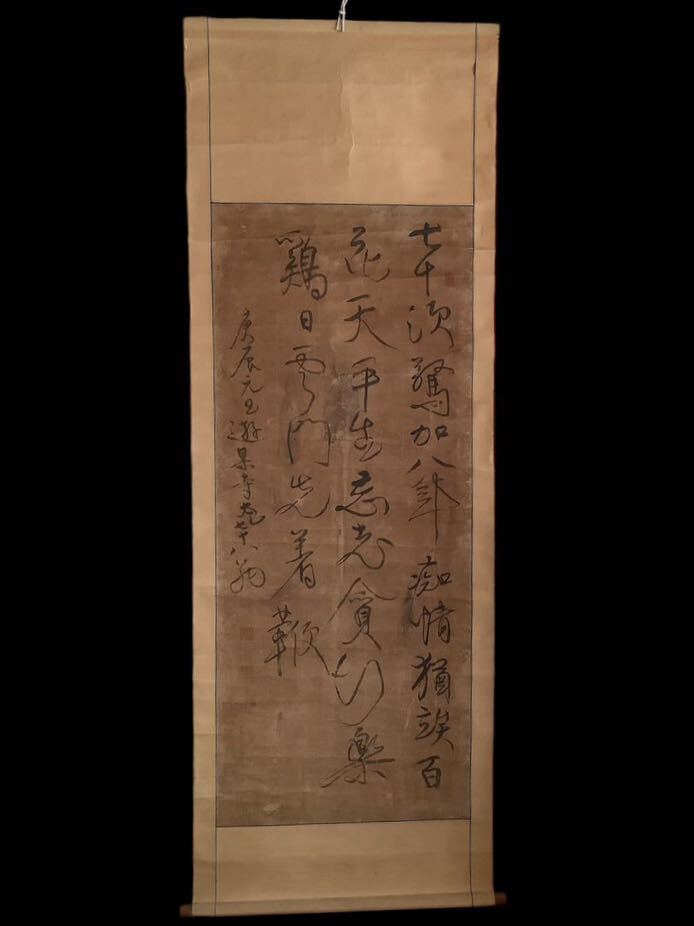 七十須驚加八年痴情猶竢百
花天平生忘老貪行樂
鷄日雲門先着鞭
庚辰元旦遊寺七十八翁